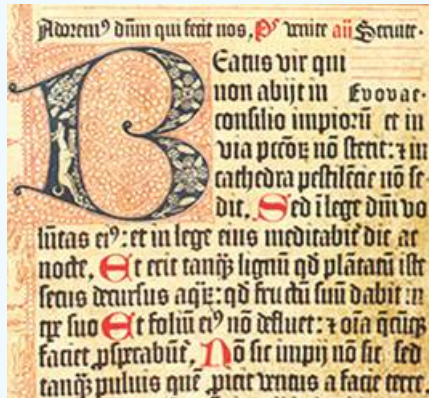 Adorem⁹ dñm qui fecit nos, Pˢ venite añ Seruite.
Beatus vir qui
non abijt in Evovae.
consilio impiorũ et in
via pccõꝝ nõ stetit: ⁊ in
cathedra pestilẽcie nõ se⸗
dit, Sed ĩ lege dñi vo
lũtas ei⁹: et in lege eius meditabit̃ die ac
nocte, Et erit tanqͣ̃ lignũ qd̃ plãtatũ iste
secus decursus aqͣꝝ: qd̃ fructũ suũ dabit: in
tꝑe suo Et foliũ ei⁹ nõ defluet: ⁊ oĩa qͣ̃cũqꝫ
faciet ꝓsperabũt̃, Nõ sic impij nõ sic sed
tanqͣ̃ puluis quẽ ꝓicit ventus a facie terre,